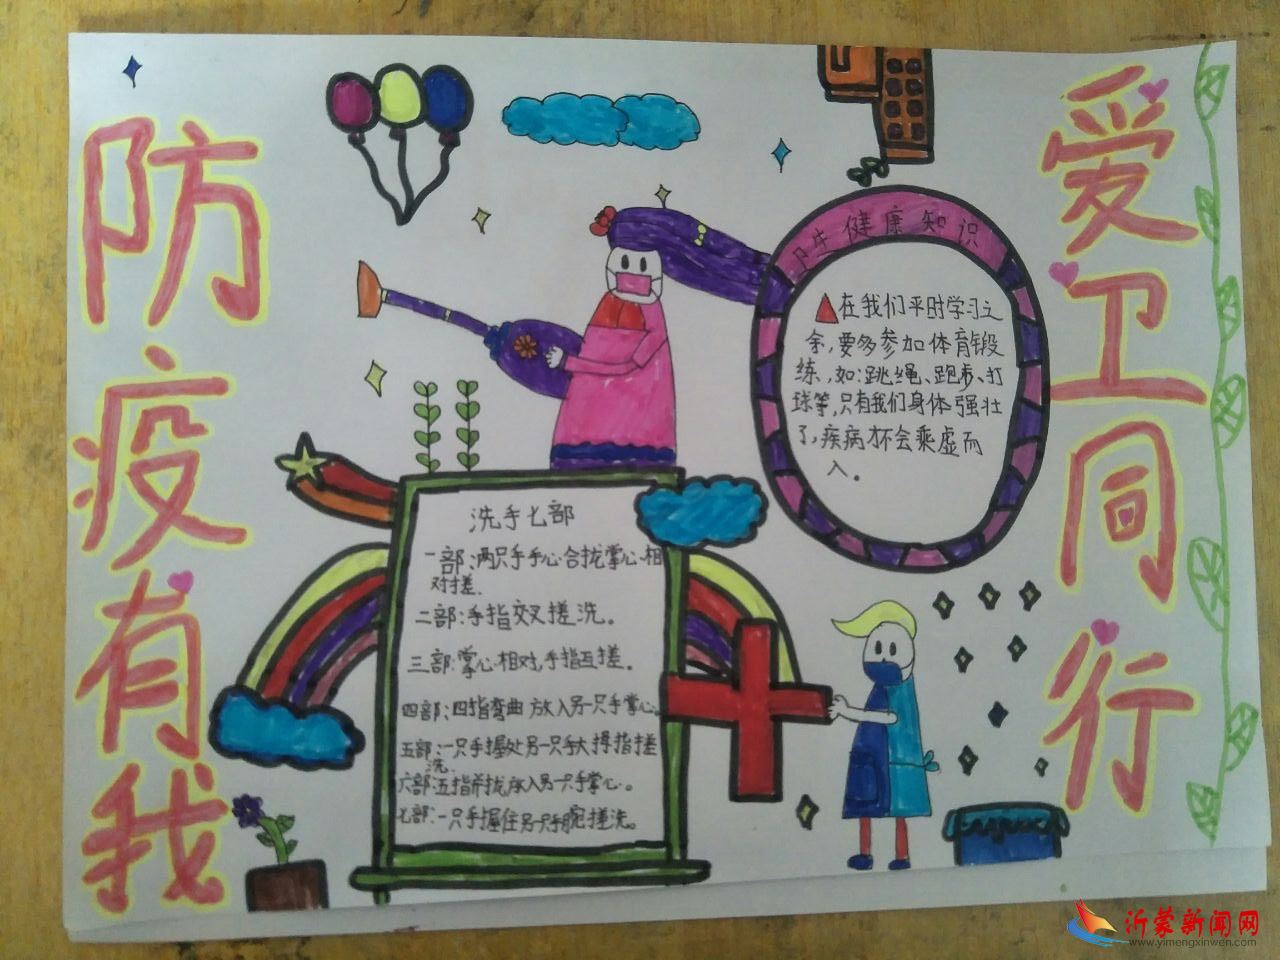 防疫有我
爱卫同行
卫生健康知识
在我们平时学习之
余,要多参加体育锻
练,如:跳绳、跑步、打
球等,只有我们身体强壮
了,疾病才不会乘虚而
入。
洗手七部
一部:两只手手心合拢掌心相
对搓.
二部:手指交叉搓洗。
三部:掌心相对,手指互搓。
四部:四指弯曲放入另一只手掌心。
五部:一只手握处另一只手大拇指搓
洗.
六部:五指并拢放入另一只手掌心。
七部:一只手握住另一只手腕搓洗。
沂蒙新闻网
www.yimengxinwen.com